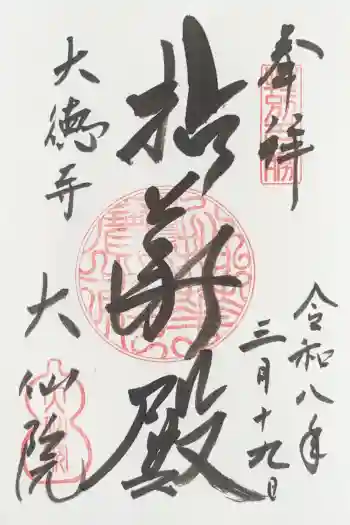 奉拝
令和八年
三月十九日
拈華殿
大徳寺
大仙院